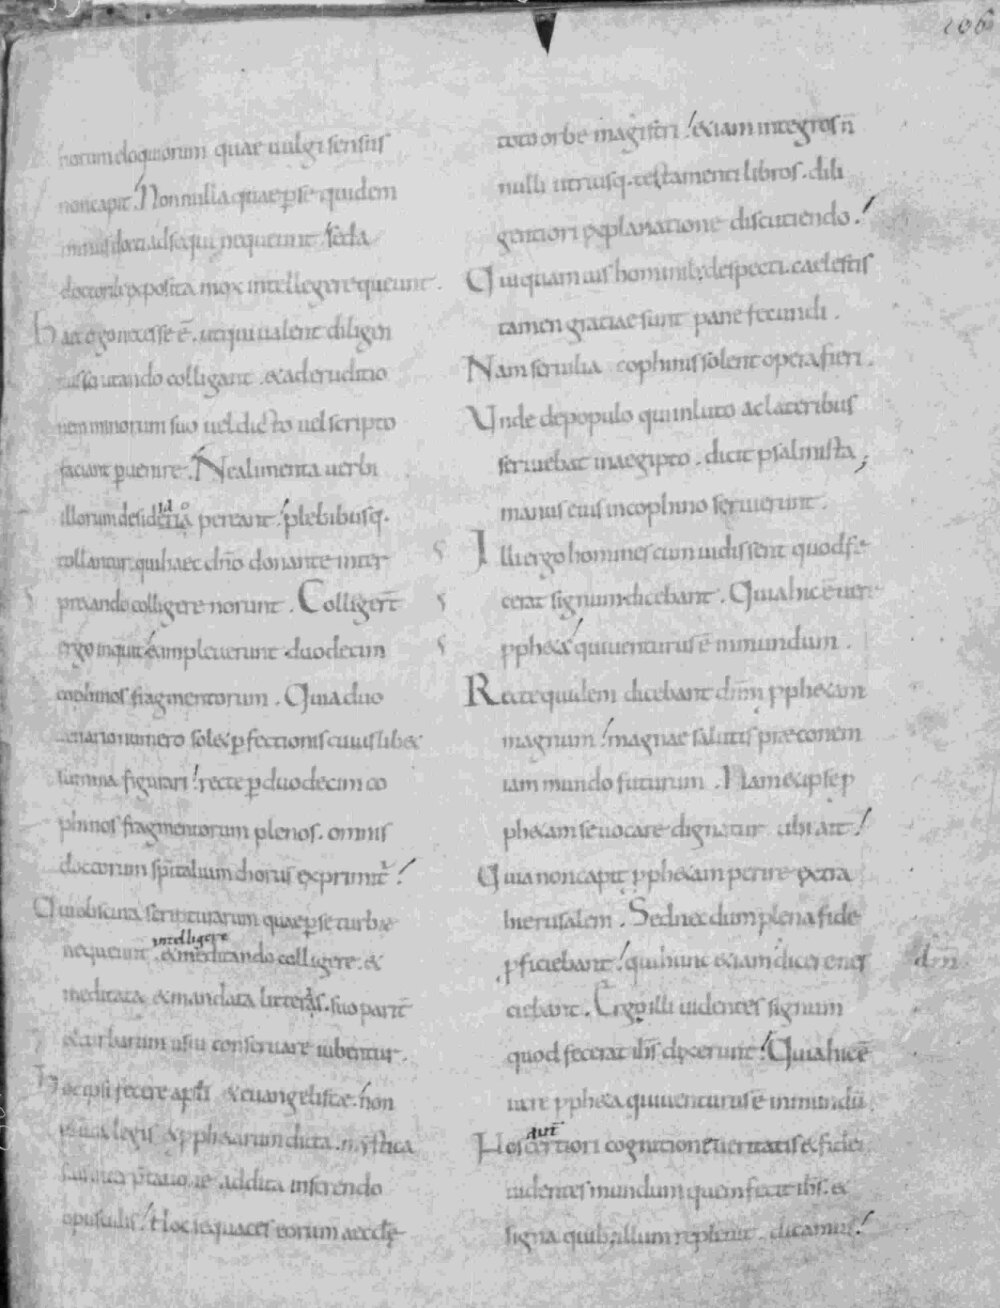 106
horum eloquiorum quae uulgi sensus
non capit. Nonnulla quae p se quidem
minus docti adsequi nequeunt sed a
doctorib exposita mox intellegere queunt.
Haec ergo necesse ē. ut qui ualent diligen
tius scrutando colligant. & ad eruditio
nem minorum suo uel dicto uel scripto
faciant puenire. Ne alimenta uerbi
illorum desideria pereant plebibusq.
tollantur. qui haec dn̄o donante inter
praetando colligere norunt. Collegert̄
ergo inquit & impleuerunt duodecim
cophinos fragmentorum. Quia duo
denario numero sol& pfectionis cuiuslib&
summa figurari! recte p duodecim co
phinos fragmentorum plenos. omnis
doctorum spīritalium chorus exprimit!
Qui obscura scripturarum quae p se turbae
nequeunt intelligere. & meditando colligere. &
meditata & mandata litteris. suo parit̄
& turbarum usui conseruare iubentur.
Hoc ipsi fecere apl̄i & euangelistae. non
pauca legis & pphetarum dicta. mystica
sua interp̄tatione addita inserendo
opusculis! Hoc sequaces eorum aecclę
toto orbe magistri! & iam integros n̄
nulli utriusq. testamenti libros. dili
gentiori explanatione discutiendo.!
Qui quamuis hominib; despecti. caelestis
tamen gratiae sunt pane fecundi.
Nam seruilia cophinis solent opera fieri.
Unde de populo qui in luto ac lateribus
seruiebat in aegipto. dicit psalmista;
manus eius in cophino seruierunt.
Illi ergo homines cum uidissent quod fe
cerat signum dicebant. Quia hic ē uere
pph&a! qui uenturus ē in mundum.
Recte quidem dicebant dn̄m pph&am
magnum! magnae salutis praeconem
iam mundo futurum. Nam & ipse p
ph&am se uocare dignatur ubi ait!
Quia non capit pph&am perire extra
hierusalem. Sed necdum plena fide
pficiebant! qui hunc etiam dicere nes dn̄m.
ciebant. Ergo illi uidentes signum
quod fecerat ih̄s dicerunt! Quia hic ē
uere pph&a qui uenturus ē in mundū.
Nos aut̄ certiori cognitione ueritatis & fidei
uidentes mundum quem fecit ih̄s. &
signa quib; illum repleuit. dicamus!